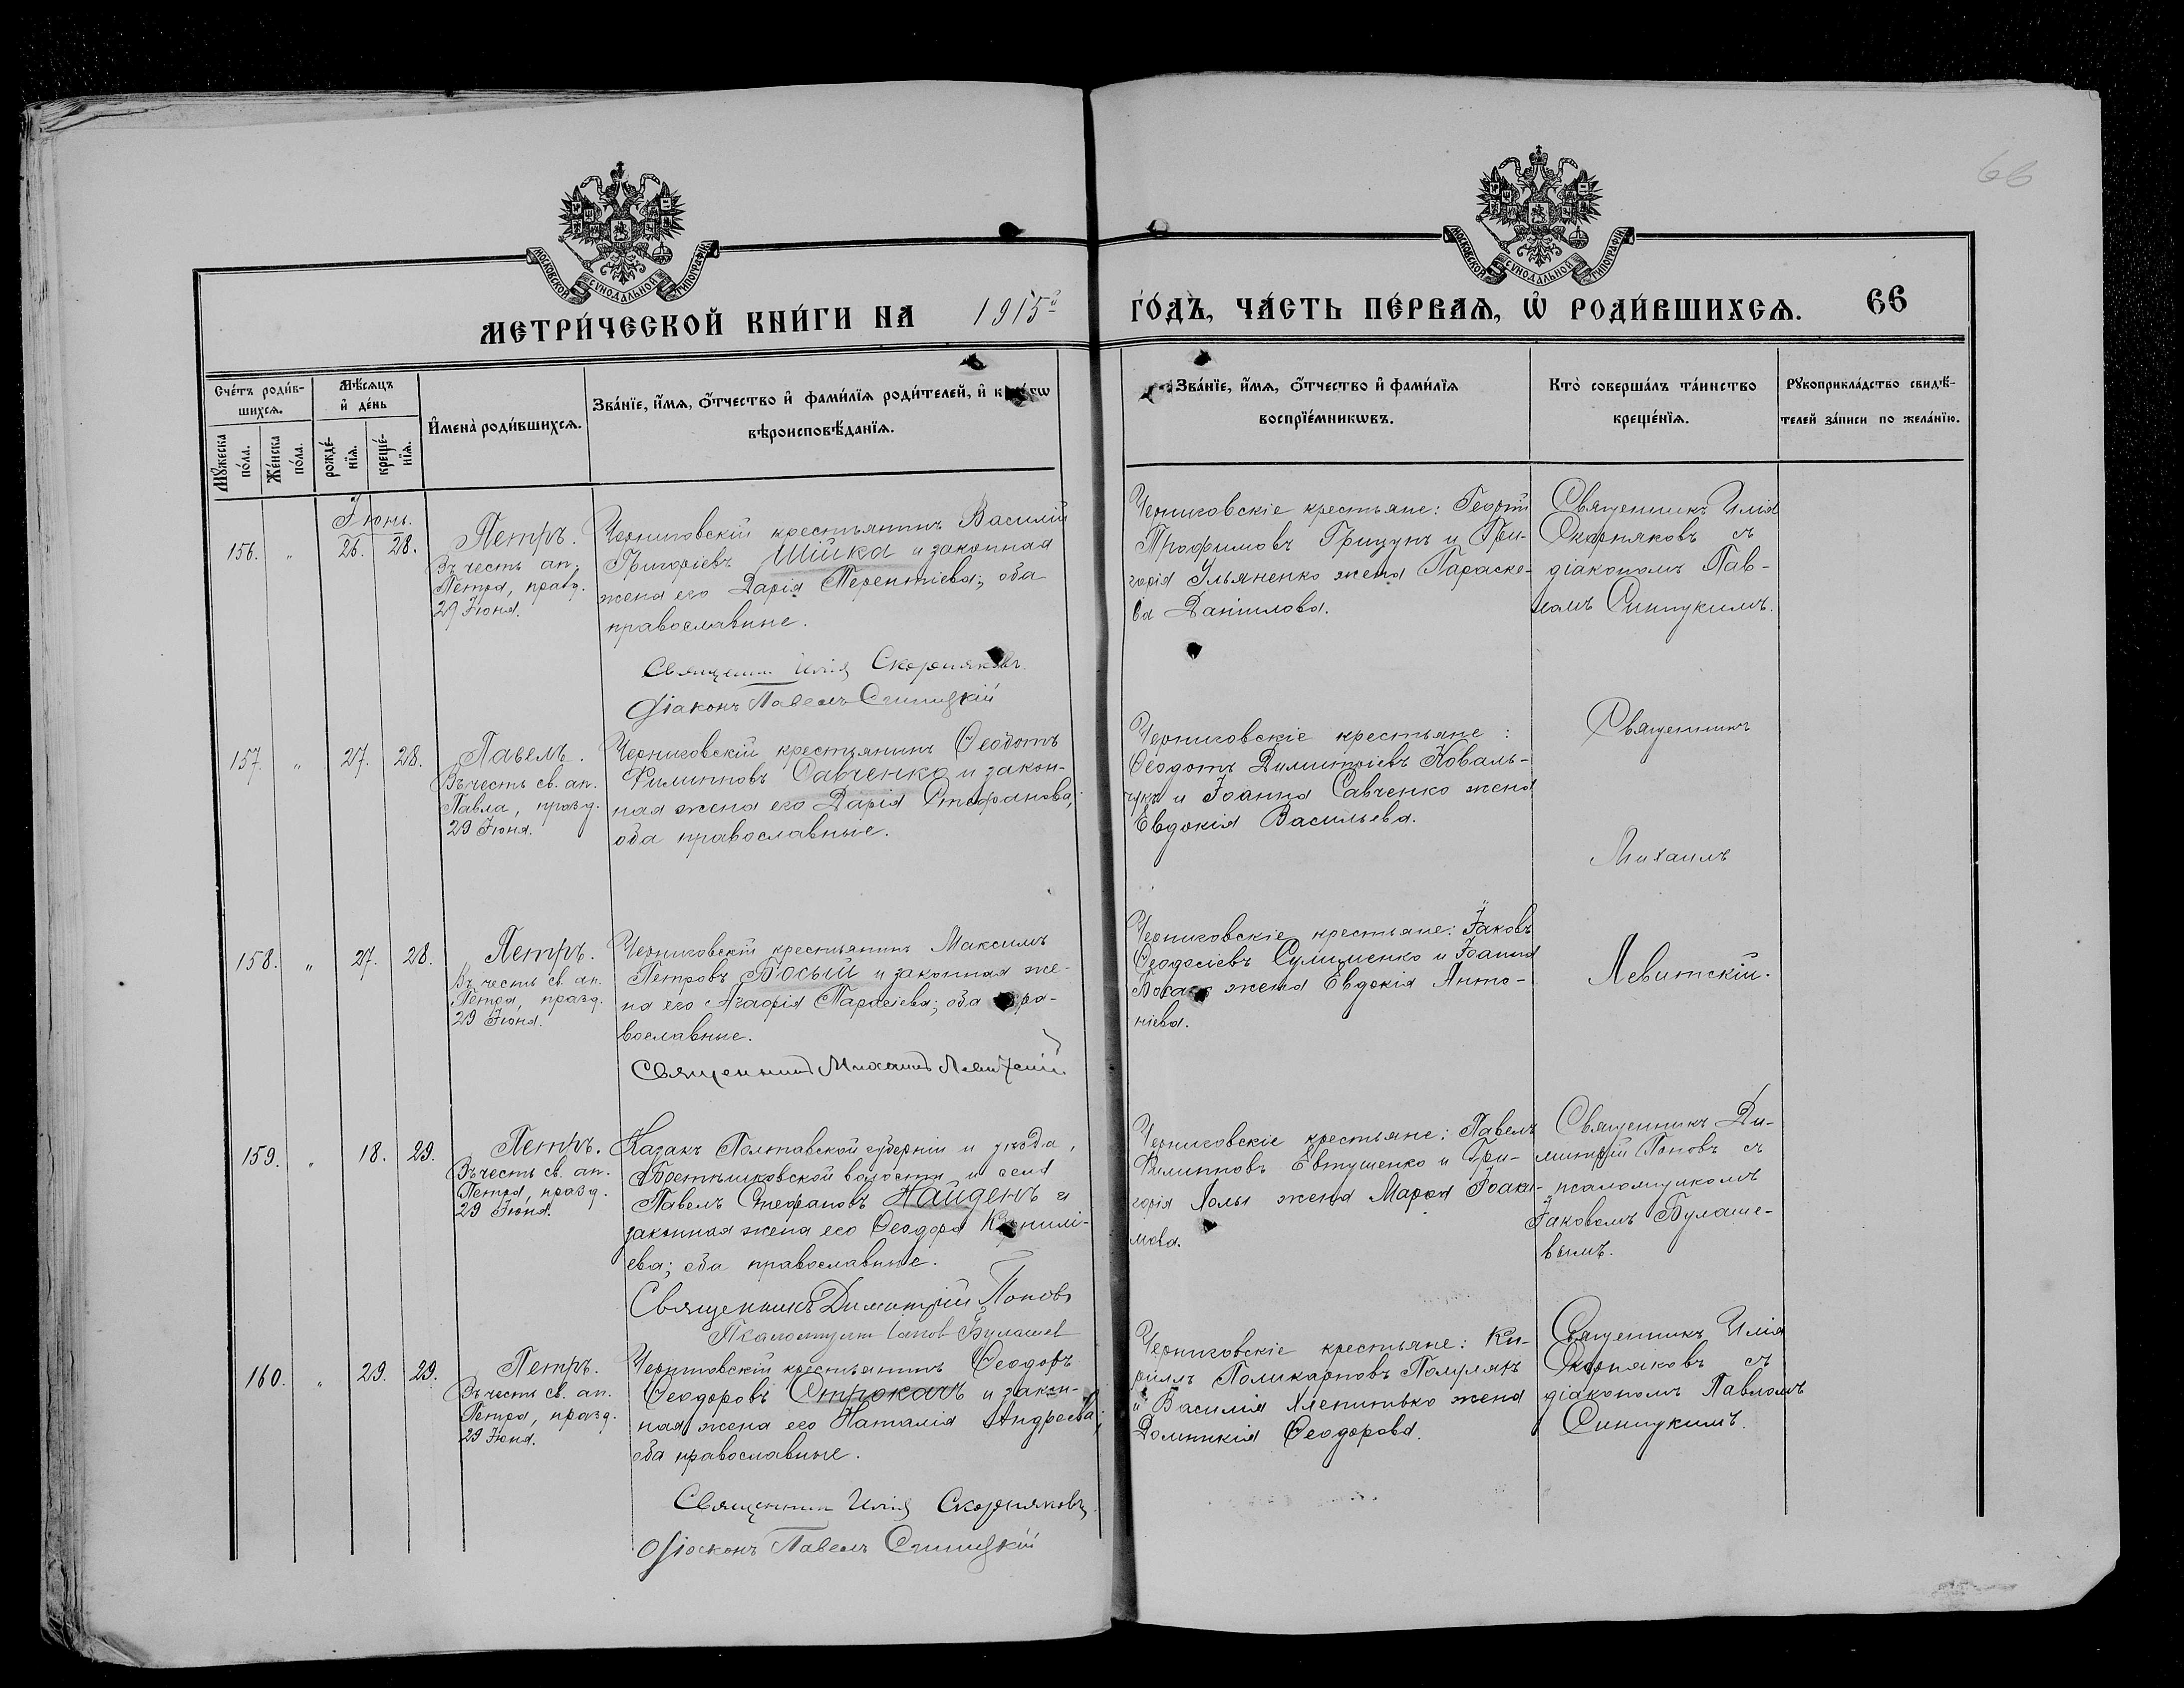 66
МОСКОВСКОЙ СѴНОДАЛЬНОЙ ТИПОГРАФІИ
МОСКОВСКОЙ СѴНОДАЛЬНОЙ ТИПОГРАФІИ
МЕТРИ́ЧЕСКОЙ КНИ́ГИ НА 1915 г. ГО́ДЪ, ЧА́СТЬ ПЕ́РВАЯ, Ѡ҆ РОДИ́ВШИХСѦ. 66
Сче́тъ роди́в-
шихсѧ.
Мꙋ́жеска по́ла.
Же́нска по́ла.
Мѣ́сѧцъ
и҆ де́нь
рожде́-
нїѧ.
креще́-
нїѧ.
И҆мена̀ роди́вшихсѧ.
Зва́нїе, и҆́мѧ, ѻ҆́тчество и҆ фами́лїѧ роди́телей, и҆
вѣроисповѣ́данїѧ.
Зва́нїе, и҆́мѧ, ѻ҆́тчество и҆ фами́лїѧ
воспрїе́мникѡвъ.
Кто̀ соверша́лъ та́инство
креще́нїѧ.
Рꙋкоприкла́дство свидѣ́-
телей за́писи по жела́нїю.
Іюнь.
156. " 26. 28.
Петръ.
Въ честь ап.
Петра, празд.
29 Іюня.
Черниговскій крестьянинъ Василій
Григоріевъ Шійка и законная
жена его Дарія Терентіева; оба
православные.
Священник Илія Скорняковъ
Діаконъ Павелъ Синицкій
Черниговскіе крестьяне: Георгій
Трофимовъ Грицунъ и Гри-
горія Ульяненко жена Параске-
ва Даніилова.
Священникъ Илія
Скорняковъ съ
діакономъ Пав-
ломъ Синицкимъ.
157. " 27. 28.
Павелъ.
Въ честь св. ап.
Павла, празд.
29 Іюня.
Черниговскій крестьянинъ Ѳеодотъ
Филипповъ Савченко и закон-
ная жена его Дарія Стефанова;
оба православные.
Черниговскіе крестьяне:
Ѳеодотъ Димитріевъ Коваль-
чукъ и Іоанна Савченко жена
Евдокія Васильева.
Священникъ
Михаилъ
Левитскій.
158. " 27. 28.
Петръ.
Въ честь св. ап.
Петра, празд.
29 Іюня.
Черниговскій крестьянинъ Максимъ
Петровъ Босый и законная же-
на его Агафія Тарасіева; оба пра-
вославные.
Священникъ Михаилъ Левитскій
Черниговскіе крестьяне: Іаковъ
Ѳеодосіевъ Сулименко и Іоанна
Босаго жена Евдокія Анто-
ніева.
159. " 18. 29.
Петръ.
Въ честь св. ап.
Петра, празд.
29 Іюня.
Казакъ Полтавской губерніи и уѣзда,
волости и села
Павелъ Стефановъ Найденъ и
законная жена его Ѳеодора Корнилі-
ева; оба православные.
Священникъ Димитрій Поповъ
Псаломщикъ Іаковъ Булашев
Черниговскіе крестьяне: Павелъ
Филипповъ Евтушенко и Гри-
горія жена Марѳа Іоаки-
мова.
Священникъ Ди-
митрій Поповъ съ
псаломщикомъ
Іаковомъ Булаше-
вымъ.
160. " 29. 29.
Петръ.
Въ честь св. ап.
Петра, празд.
29 Іюня.
Черниговскій крестьянинъ Ѳеодоръ
Ѳеодоровъ Строкачъ и закон-
ная жена его Наталія Андреева;
оба православные.
Священник Илія Скорняковъ
Діаконъ Павелъ Синицкій
Черниговскіе крестьяне: Ки-
риллъ Поликарповъ
и Василія жена
Домникія Ѳеодорова.
Священникъ Илія
Скорняковъ съ
діакономъ Павломъ
Синицкимъ.